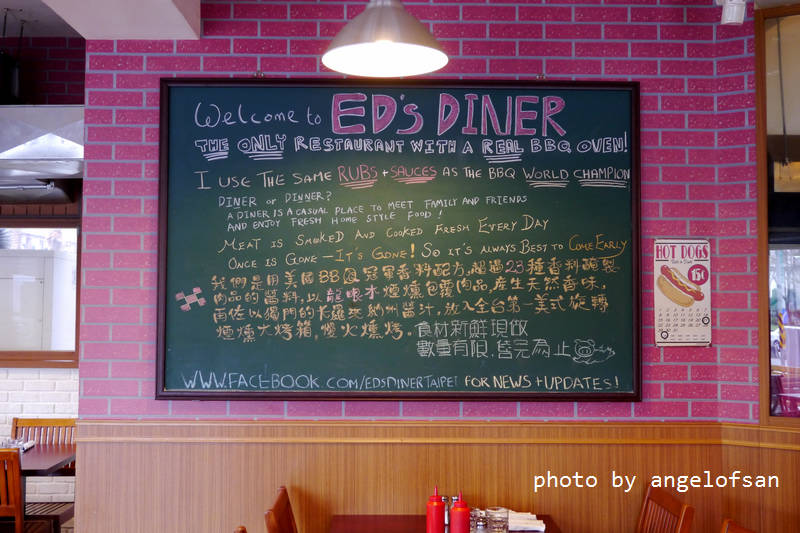 Welcome to ED'S DINER
THE ONLY RESTAURANT WITH A REAL BBQ OVEN!
I USE THE SAME RUBS + SAUCES AS THE BBQ WORLD CHAMPION
DINER or DINNER?
A DINER IS A CASUAL PLACE TO MEET FAMILY AND FRIENDS
AND ENJOY FRESH HOME STYLE FOOD!
MEAT IS SMOKED AND COOKED FRESH EVERY DAY
ONCE IS GONE - IT'S GONE! SO IT'S ALWAYS BEST TO COME EARLY
我們是用美國BBQ冠軍香料配方,超過23種香料醃製
肉品的醬料,以龍眼木煙燻包覆肉品,產生天然香味,
再佐以獨門的卡羅來納州醬汁,放入全台第一美式旋轉
煙燻大烤箱,慢火燻烤。食材新鮮現做
數量有限,售完為止
WWW.FACEBOOK.COM/EDSDINERTAIPEI FOR NEWS + UPDATES!
HOT DOGS
15¢
photo by angelofsan